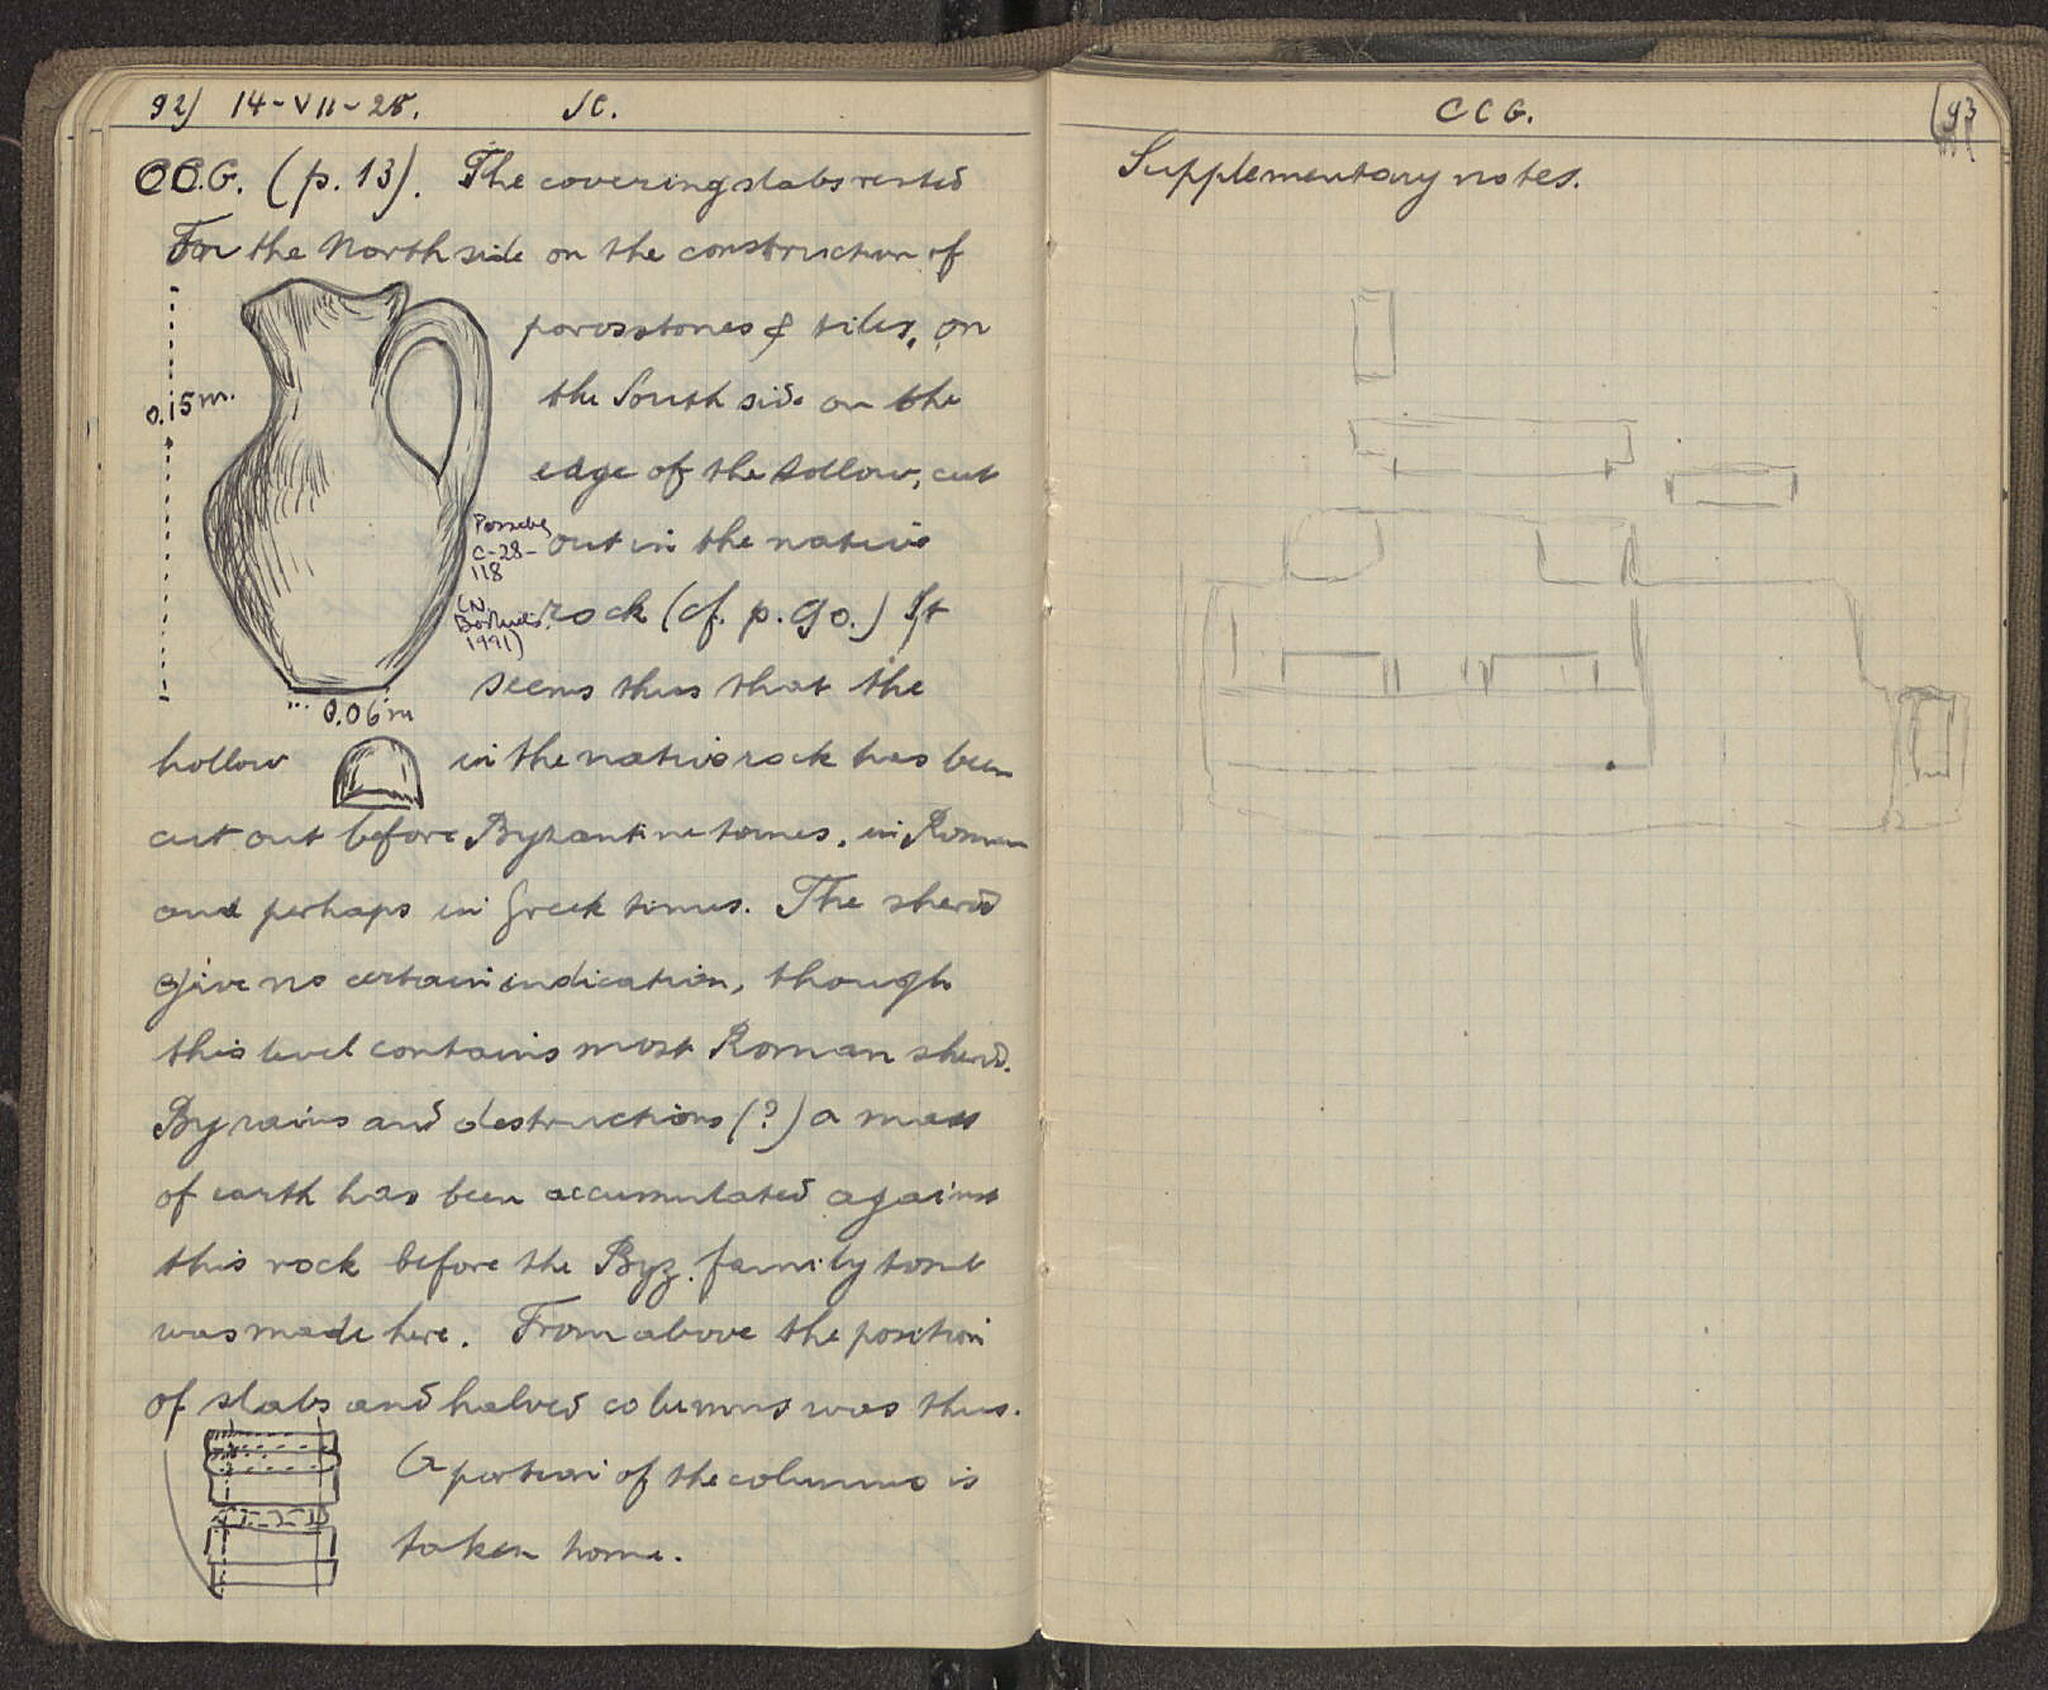 92) 14-VII-28. SC.
C.C.G. (p. 13). The covering slabs rested
on the North side on the construction of
poros stones & tiles, on
0.15 m.
the South side on the
edge of the hollow, cut
Possibly
C-28-
118
(N.
Bookidis
1991)
out in the native
rock (cf. p. 90.) It
seems thus that the
0.06 m
hollow in the native rock has been
cut out before Byzantine times, in Roman
and perhaps in Greek times. The sherds
give no certain indication, though
this level contains most Roman sherds.
By rains and destructions (?) a mass
of earth has been accumulated against
this rock before the Byz. family tomb
was made here. From above the position
of slabs and halved columns was thus.
A portion of the columns is
taken home.
C C G. (93
Supplementary notes.